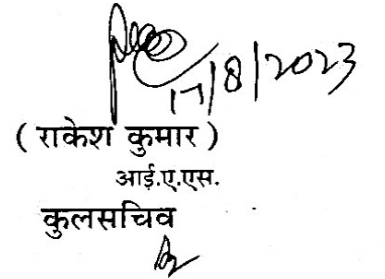 17/8/2023
( राकेश कुमार )
आई.ए.एस.
कुलसचिव